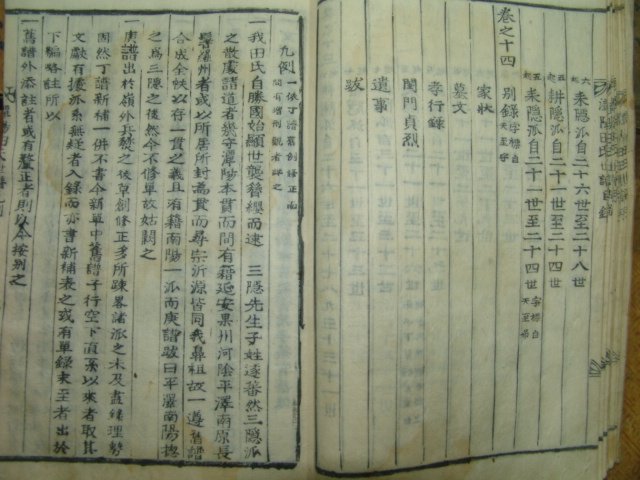 卷之十四
六起 耒隱派自二十六世至二十八世
五起 耕隱派自二十一世至二十四世
五起 耒隱派自二十一世至二十四世 字標自天至
別錄 字標自天至宇
家狀
墓文
孝行錄
閨門貞烈
遺事
跋
凡例 一依丁譜舊例修正而間有增刪觀者詳之
一我田氏自勝國始顯世襲簪纓而逮 三隱先生子姓逐蕃然三隱派
之散處諸道者舉守潭陽本貫而間有籍延安果州河陰平澤南原長
鬐羅州者或以所居所封爲貫而尋宗沂源皆同我鼻祖故一遵舊譜
合成全帙以存一貫之義且有籍南陽一派而庚譜跋曰平澤南陽
之爲三隱之後然今不修單故姑闕之
一庚譜出於嶺外兵燹之後草創修正多所踈畧諸派之未及盡緖理勢
固然丁譜新補一併不書今新單中舊譜子行空下直系以來者取其
文獻有據派系無疑者入錄而亦書新補表之或有單錄未至者出於
下編略註所以
一舊譜外添註者或有釐正者則以今按別之